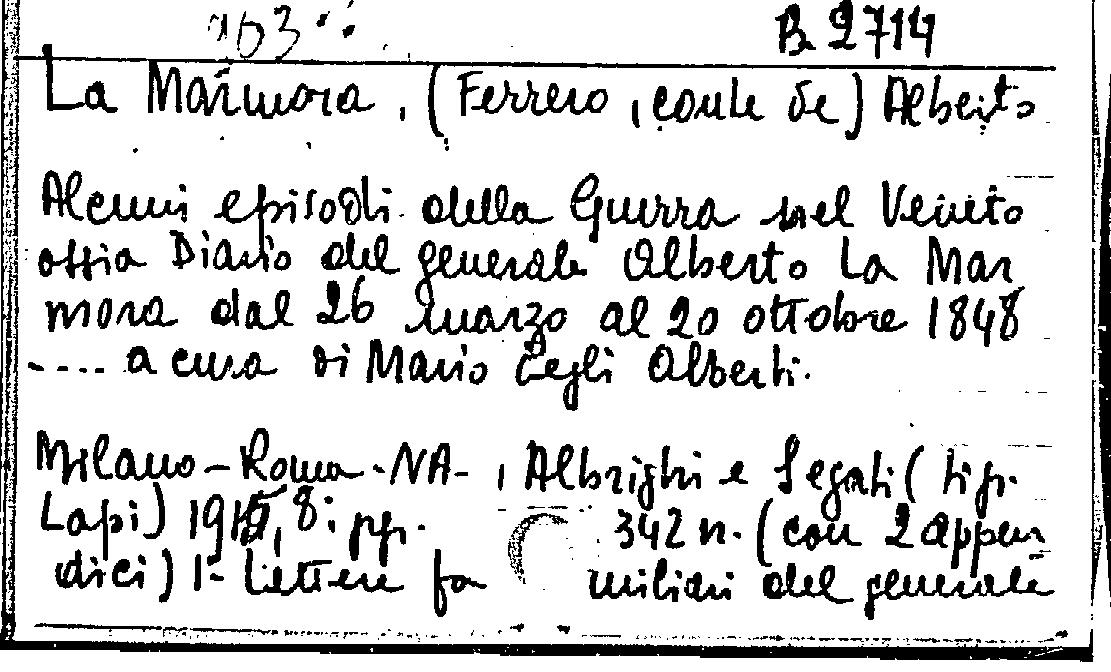 B. 2714
La Marmora, (Ferrero, conte de) Alberto
Alcuni episodi della Guerra nel Veneto
ossia Diario del generale Alberto La Mar
mora dal 26 marzo al 20 ottobre 1848
.... a cura di Mario Degli Alberti.
Milano-Roma-NA-, Albrighi e Segati (tip.
Lapi) 1915, 8: pp. 342 n. (con 2 appen
dici) 1- Lettere fa miliari del generale